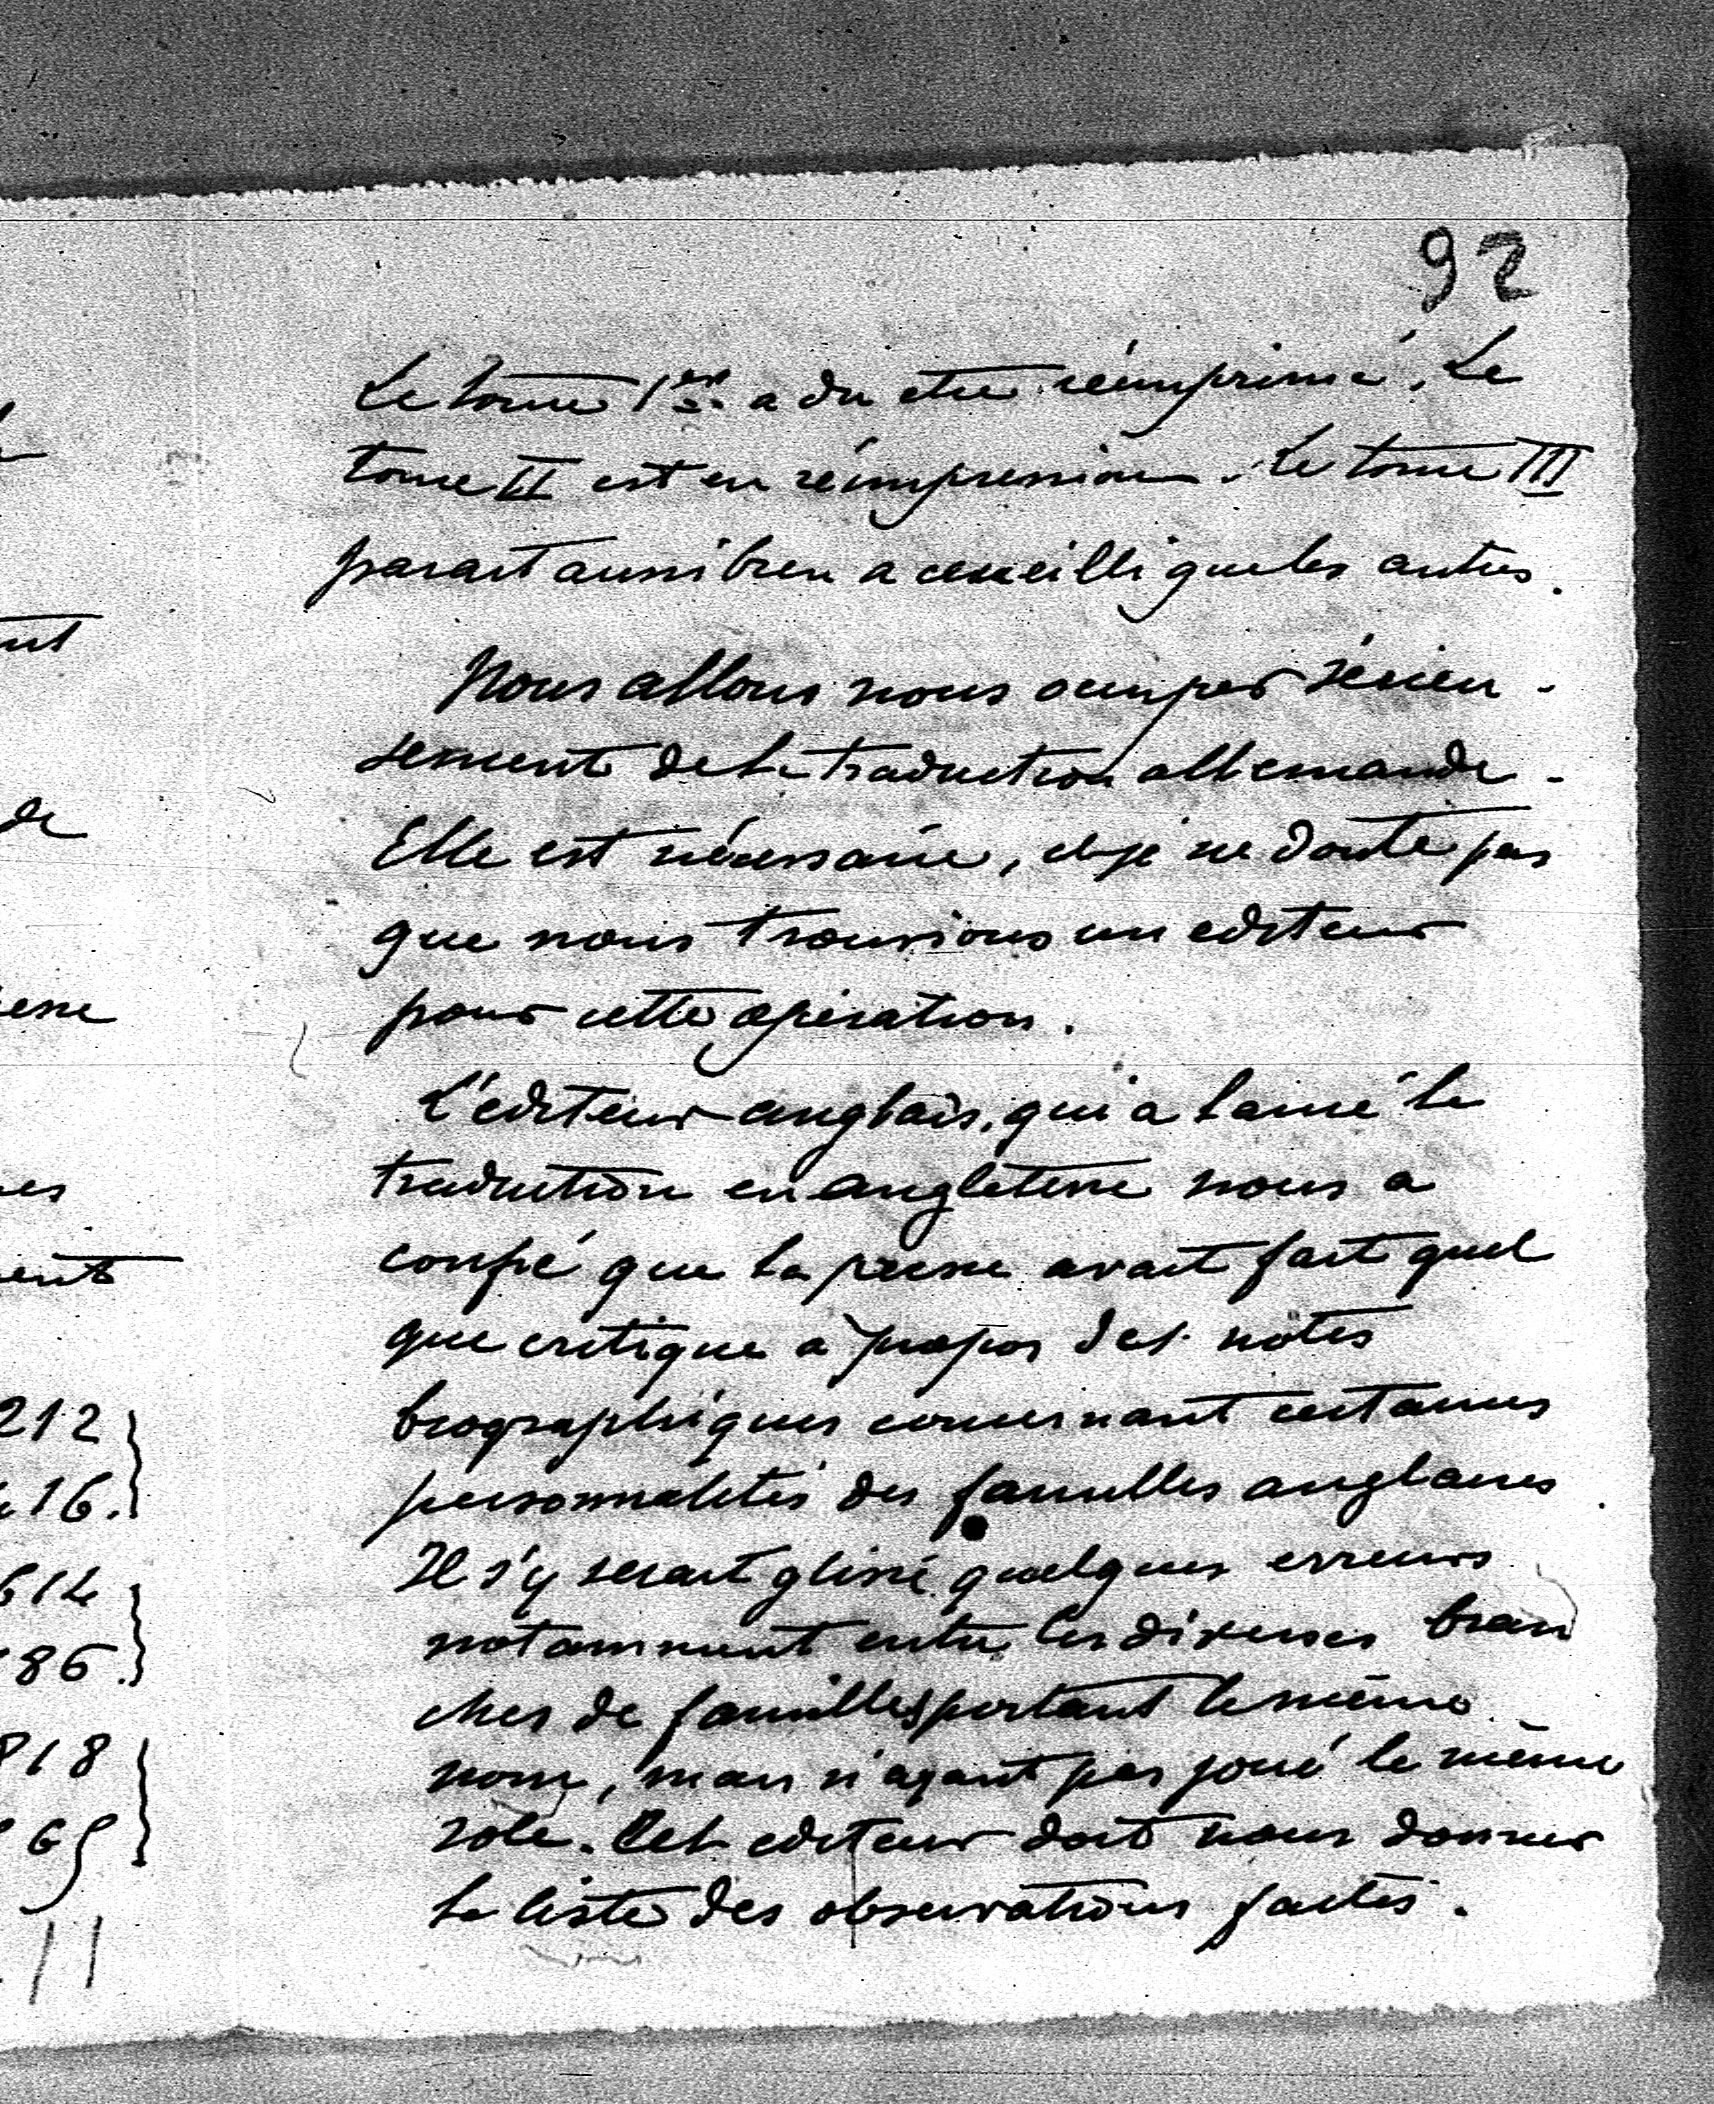 92
Le tome 1er a du etre réimprimé. Le
tome II est en réimpression. Le tome III
parait aussi bien accueilli que les autres.
Nous allons nous occuper sérieu-
sement de la traduction allemande.
Elle est nécessaire, et je ne doute pas
que nous trouvions un editeur
pour cette opération.
L'editeur anglais, qui a lancé la
traduction en angleterre nous a
confié que la presse avait fait quel
que critique à propos des notes
biographiques concernant certaines
personnalités des familles anglaises.
Il s'y serait glissé quelques erreurs
notamment entre les diverses bran
ches de familles portant le même
nom, mais n'ayant pas joué le même
role. Cet editeur doit nous donner
la liste des observations faites.
de
212
16.
614
86.
818
65
11